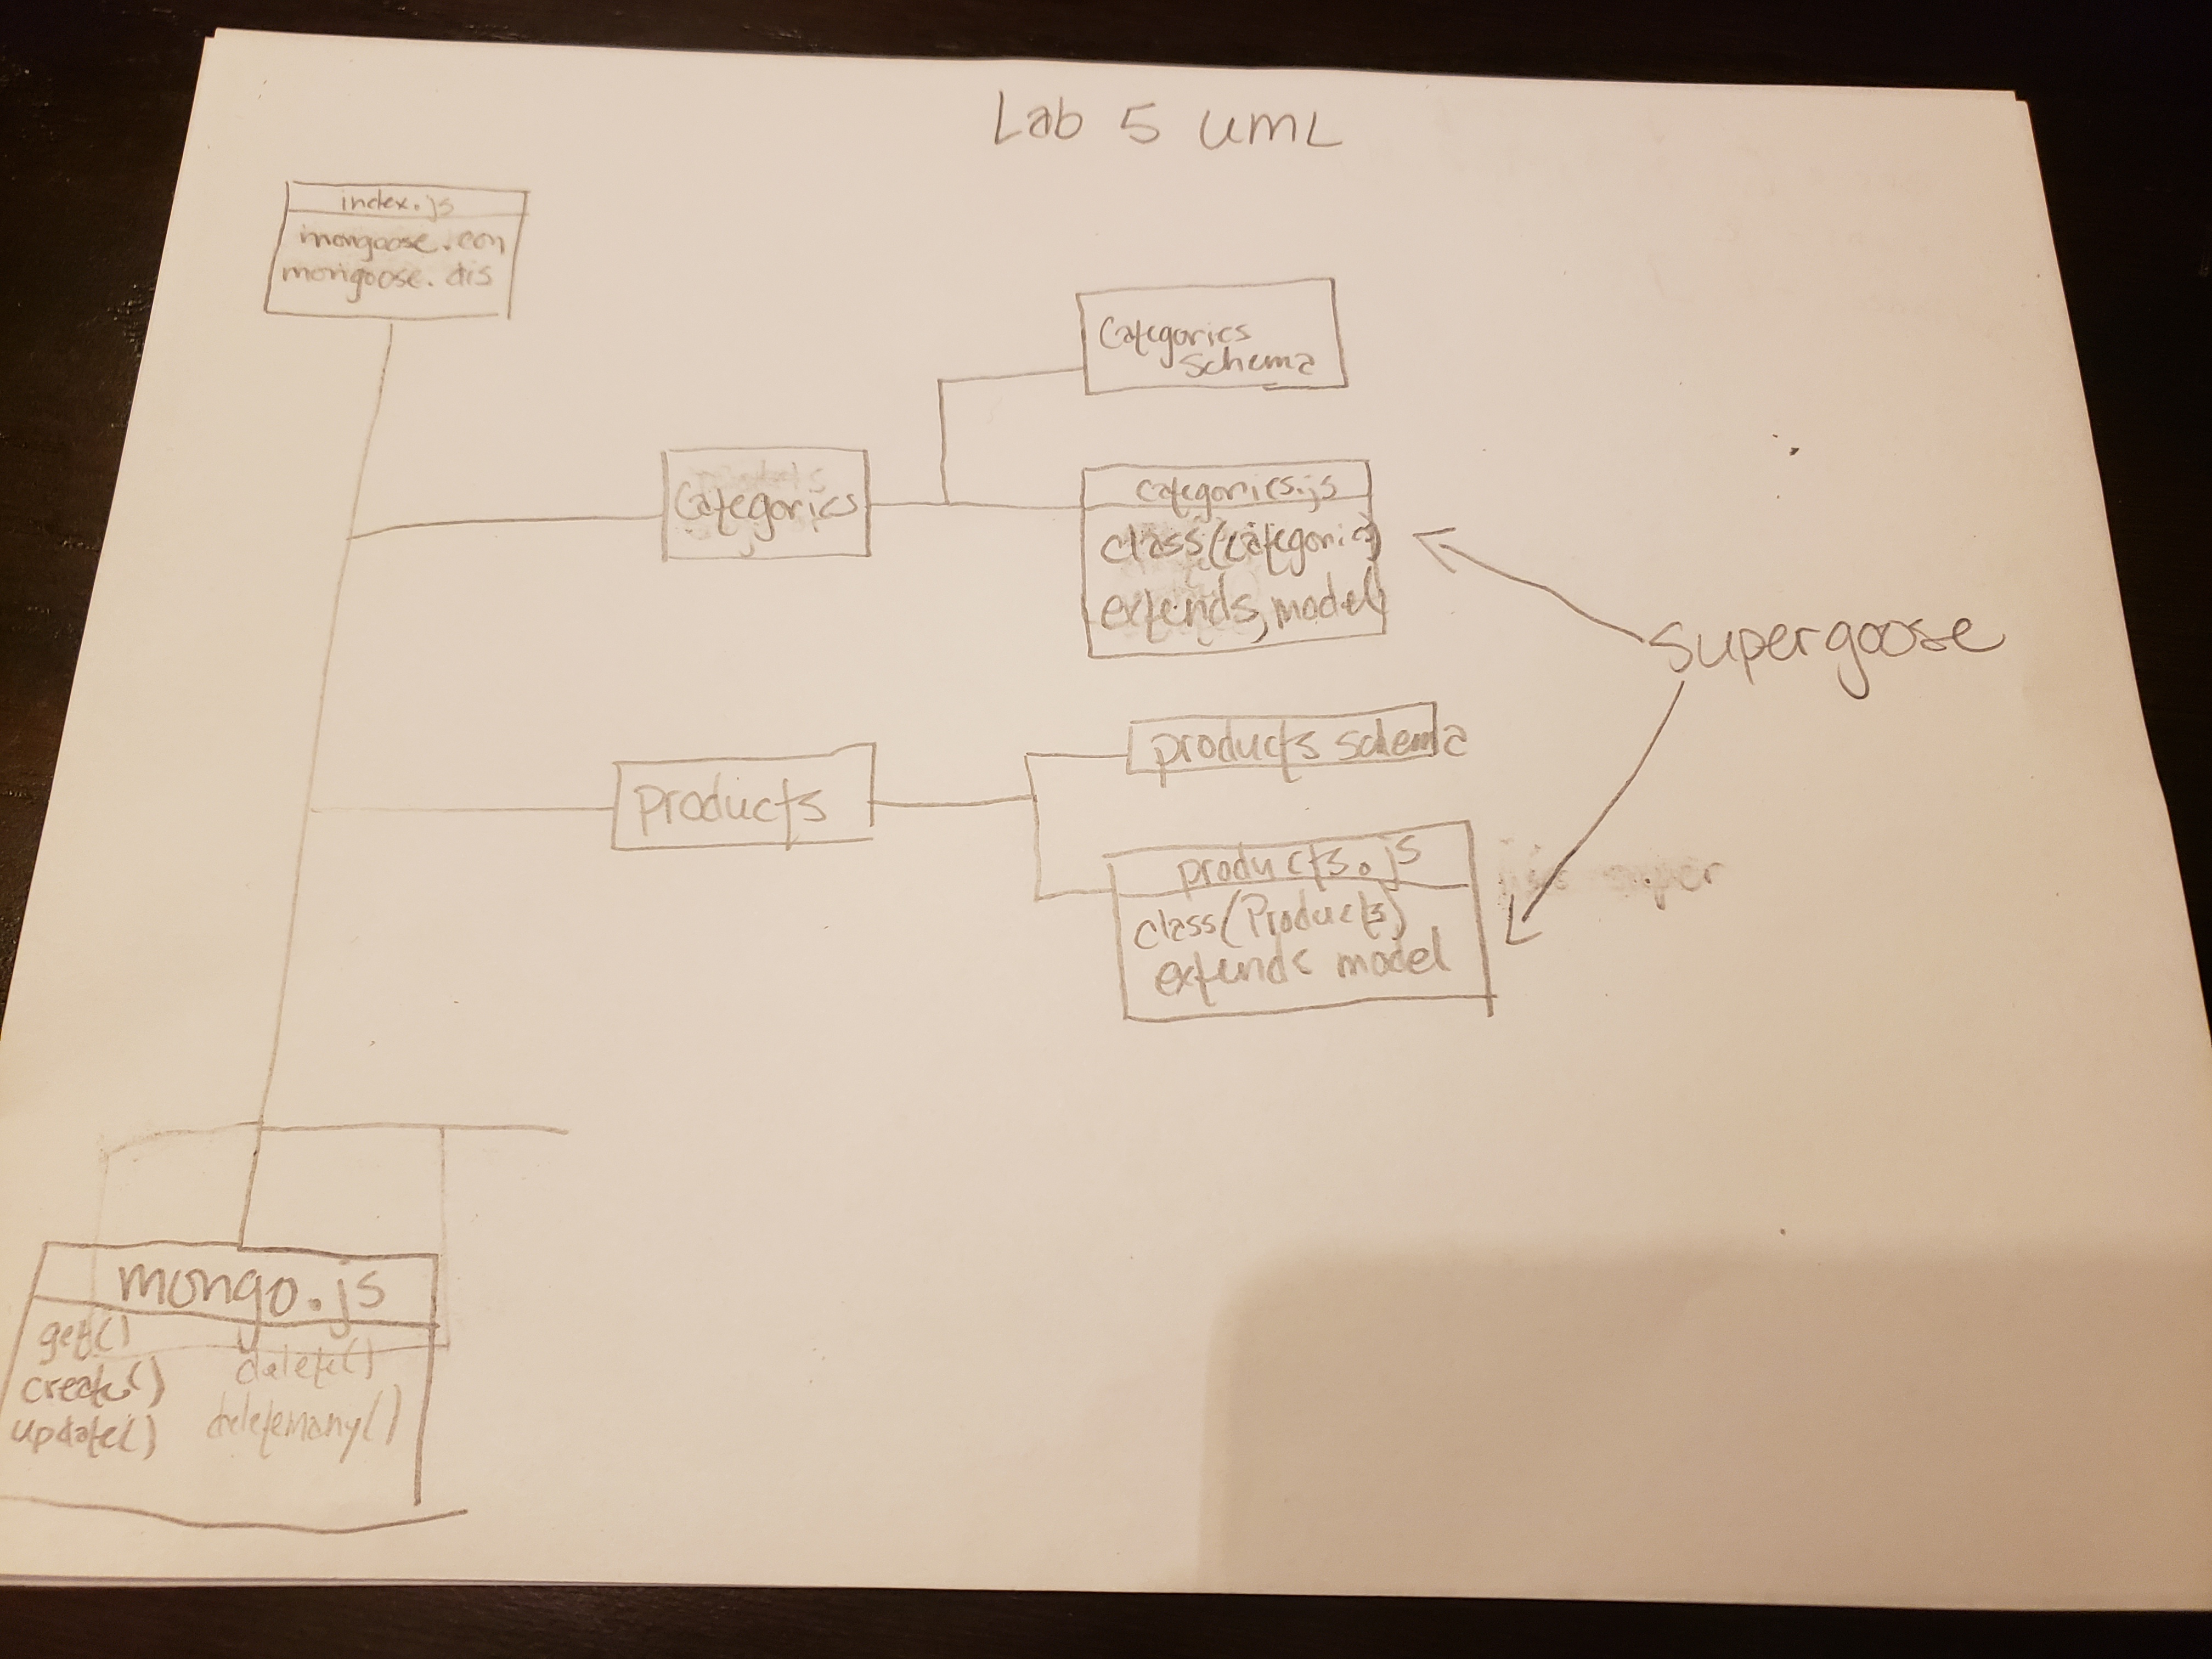 Lab 5 UML
index.js
mongoose.con
mongoose.dis
Categories
schema
Categories
categories.js
class(Categories)
extends model
supergoose
products schema
products
products.js
super
class(Products)
extends model
mongo.js
get()
delete()
create()
deletemany()
update()